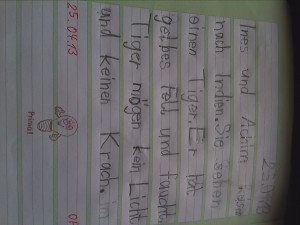 25.04.13
Ines und Achim
nach Indien. Sie sehen
einen Tiger. Er
gelbes Fell, und faucht.
Tiger mögen kein Licht
und keinen Krach. in
25.04.13
Prima!